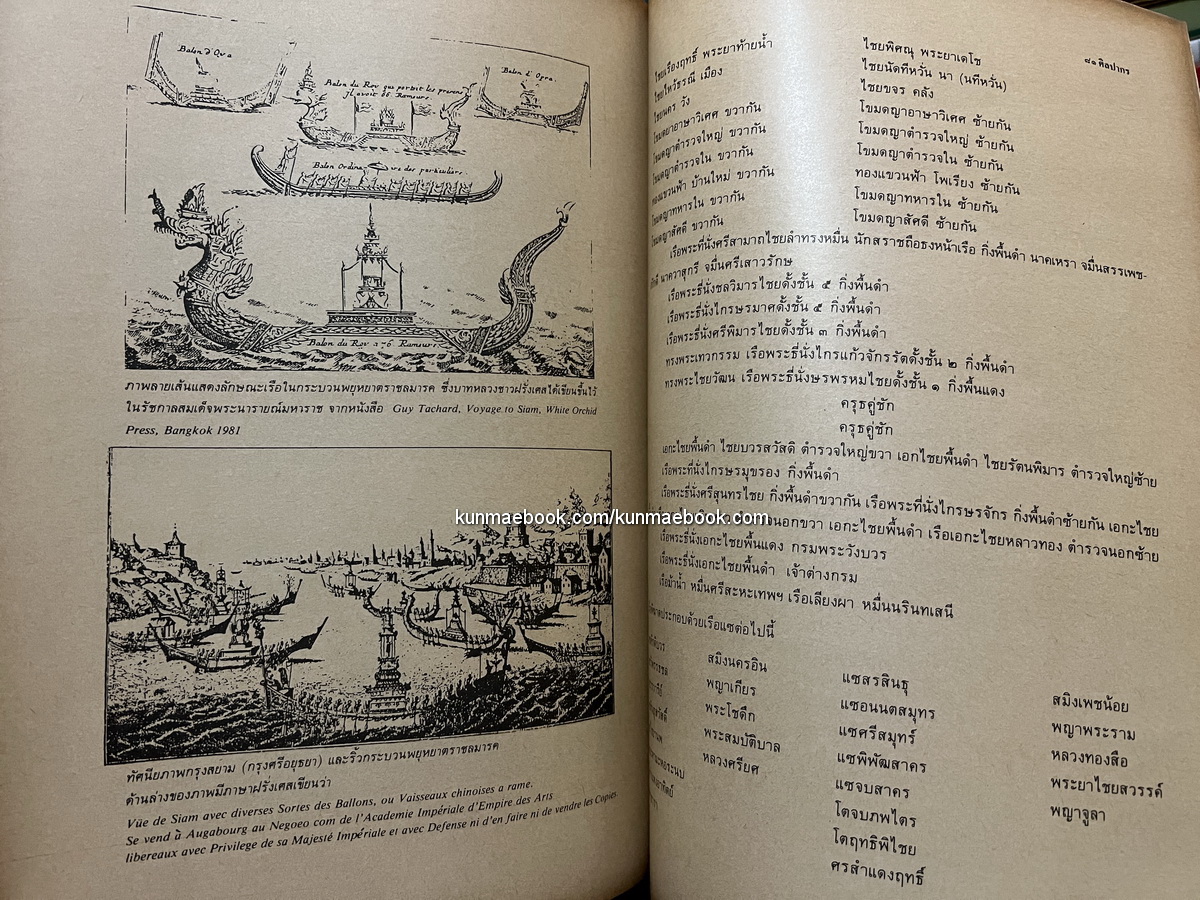 Balon d'Ova
Balon du Roy que portoit les presens
Il avoit 86 Rameurs.
Balon d'Opra.
Balon Ordina re des particuliers
Balon du Roy a 76 Rameurs.
ภาพลายเส้นแสดงลักษณะเรือในกระบวนพยุหยาตราชลมารค ซึ่งบาทหลวงชาวฝรั่งเศสได้เขียนขึ้นไว้
ในรัชกาลสมเด็จพระนารายณ์มหาราช จากหนังสือ Guy Tachard, Voyage to Siam, White Orchid
Press, Bangkok 1981
ทัศนียภาพกรุงสยาม (กรุงศรีอยุธยา) และริ้วกระบวนพยุหยาตราชลมารค
ด้านล่างของภาพมีภาษาฝรั่งเศสเขียนว่า
Vüe de Siam avec diverses Sortes des Ballons, ou Vaisseaux chinoises a rame.
Se vend à Augabourg au Negoeo com de l'Academie Impériale d'Empire des Arts
libereaux avec Privilege de sa Majesté Impériale et avec Defense ni d'en faire ni de vendre les Copies
kunmaebook.com/kunmaebook.com
๘๑ ศิลปากร
ไชยเรืองฤทธิ์ พระยาท้ายน้ำ
ไชยพิศณุ พระยาเดโช
ไชยไหวัธรณี เมือง
ไชยนัดทีหวั่น นา (นทีหวั่น)
วัง
ไชยขจร คลัง
โขมดยาอาษาวิเศศ ขวากัน
โขมดญาอาษาวิเศศ ซ้ายกัน
โขมดญาตำรวจใหญ่ ขวากัน
โขมดญาตำรวจใหญ่ ซ้ายกัน
โขมดญาตำรวจใน ขวากัน
โขมดญาตำรวจใน ซ้ายกัน
ทองแขวนฟ้า บ้านใหม่ ขวากัน
ทองแขวนฟ้า โพเรียง ซ้ายกัน
โขมดญาทหารใน ขวากัน
โขมดญาทหารใน ซ้ายกัน
โขมดญาสัศดี ขวากัน
โขมดญาสัศดี ซ้ายกัน
เรือพระที่นั่งศรีสามาถไชยลำทรงหมื่น นักสราชถือธงหน้าเรือ กิ่งพื้นดำ นาคเหรา จมื่นสรรเพช-
นาควาสุกรี จมื่นศรีเสาวรักษ
เรือพระธี่นั่งชลวิมารไชยดั้งชั้น ๕ กิ่งพื้นดำ
เรือพระธี่นั่งไกรษรมาศดั้งชั้น ๕ กิ่งพื้นดำ
เรือพระธี่นั่งศรีพิมารไชยดั้งชั้น ๓ กิ่งพื้นดำ
ทรงพระเทวกรรม เรือพระธี่นั่งไกรแก้วจักรรัตดั้งชั้น ๒ กิ่งพื้นดำ
ทรงพระไชยวัฒน เรือพระธี่นั่งษรพรหมไชยดั้งชั้น ๑ กิ่งพื้นแดง
ครุธคู่ชัก
ครุธคู่ชัก
เอกะไชยพื้นดำ ไชยบวรสวัสดิ ตำรวจใหญ่ขวา เอกไชยพื้นดำ ไชยรัตนพิมาร ตำรวจใหญ่ซ้าย
เรือพระที่นั่งไกรษรมุขรอง กิ่งพื้นดำ
เรือพระธี่นั่งศรีสุนทรไชย กิ่งพื้นดำขวากัน เรือพระที่นั่งไกรษรจักร กิ่งพื้นดำซ้ายกัน เอกะไชย
นอกขวา เอกะไชยพื้นดำ เรือเอกะไชยหลาวทอง ตำรวจนอกซ้าย
เรือพระธี่นั่งเอกะไชยพื้นแดง กรมพระวังบวร
เรือพระธี่นั่งเอกะไชยพื้นดำ เจ้าต่างกรม
เรือม้าน้ำ หมื่นศรีสะหะเทพฯ เรือเลียงผา หมื่นนรินทเสนี
ประกอบด้วยเรือแซต่อไปนี้
สมิงนครอิน
แซสรสินธุ
สมิงเพชน้อย
พญาเกียร
แซอนนตสมุทร
พญาพระราม
พระโชดึก
แซศรีสมุทร์
หลวงทองสือ
พระสมบัติบาล
แซพิพัฒสาคร
พระยาไชยสวรรค์
หลวงศรียศ
แซจบสาคร
พญาจูลา
โตจบภพไตร
โตฤทธิพิไชย
ศรสำแดงฤทธิ์